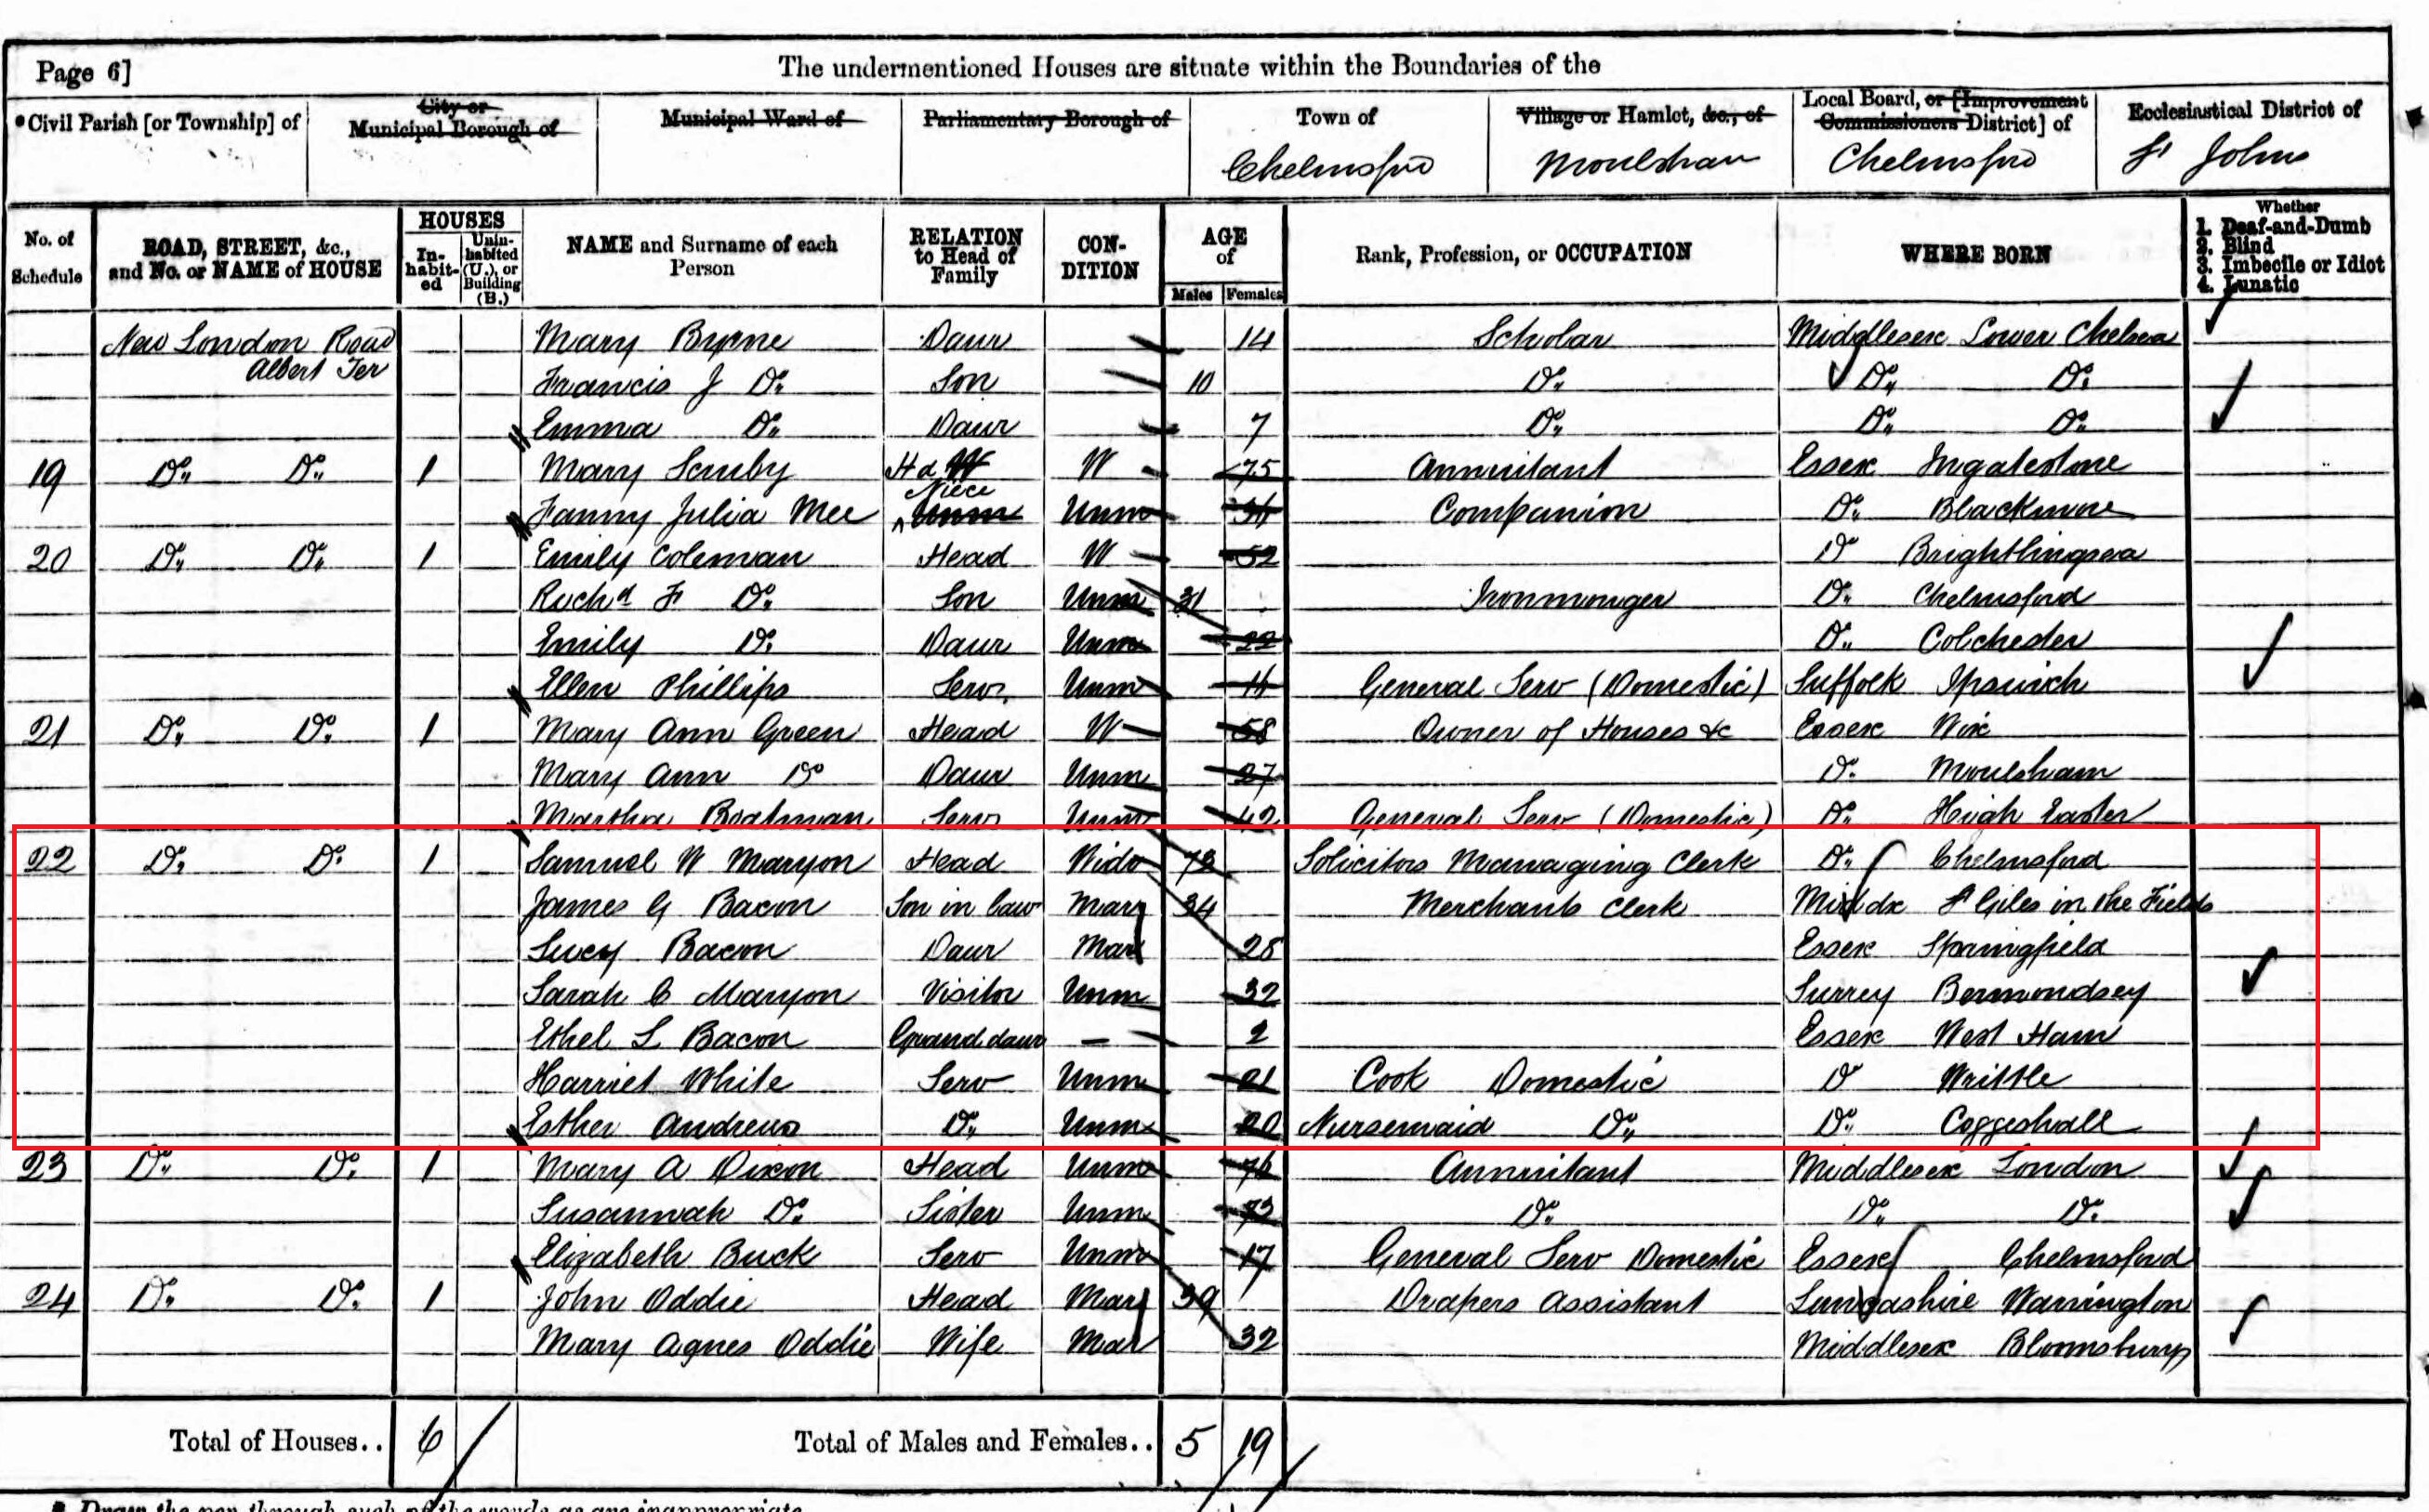 Page 6]
The undermentioned Houses are situate within the Boundaries of the
*Civil Parish [or Township] of
City or Municipal Borough of
Municipal Ward of
Parliamentary Borough of
Town of
Village or Hamlet, &c., of
Local Board, or [Improvement Commissioners District] of
Ecclesiastical District of
Chelmsford Moulsham Chelmsford St Johns
No. of Schedule
ROAD, STREET, &c., and No. or NAME of HOUSE
HOUSES
Inhabited
Uninhabited (U.), or Building (B.)
NAME and Surname of each Person
RELATION to Head of Family
CONDITION
AGE of
Males Females
Rank, Profession, or OCCUPATION
WHERE BORN
Whether
1. Deaf-and-Dumb
2. Blind
3. Imbecile or Idiot
4. Lunatic
New London Road Mary Byrne Daur 14 Scholar Middlesex Lower Chelsea
Albert Ter Francis J Do. Son 10 Do. Do. Do.
Emma Do. Daur 7 Do. Do. Do.
19 Do. Do. 1 Mary Scruby Hd W W 75 Annuitant Essex Ingatestone
Fanny Julia Mee Niece Unm Unm Companion Do. Blackmore
20 Do. Do. 1 Emily Coleman Head W 52 Do Brightlingsea
Richd F Do. Son Unm 31 Ironmonger Do. Chelmsford
Emily Do. Daur Unm 22 Do. Colchester
Ellen Phillips Serv. Unm General Serv (Domestic) Suffolk Ipswich
21 Do. Do. 1 Mary Ann Green Head W 58 Owner of Houses &c Essex Wix
Mary Ann Do Daur Unm 27 Do. Moulsham
Martha Boatman Serv Unm 42 General Serv (Domestic) Do. High Easter
22 Do. Do. 1 Samuel W Maryon Head Widr 73 Solicitors Managing Clerk Do. Chelmsford
James G Bacon Son in law Mar 34 Merchants Clerk Middx St Giles in the Fields
Lucy Bacon Daur Mar 28 Essex Springfield
Sarah C Maryon Visitor Unm 32 Surrey Bermondsey
Ethel L Bacon Grand daur — 2 Essex West Ham
Harriet White Serv Unm 21 Cook Domestic Do Writtle
Esther Andrews Do. Unm 20 Nursemaid Do. Do. Coggeshall
23 Do. Do. 1 Mary A Dixon Head Unm 76 Annuitant Middlesex London
Susannah Do. Sister Unm 73 Do. Do. Do.
Elizabeth Buck Serv Unm 17 General Serv Domestic Essex Chelmsford
24 Do. Do. 1 John Oddie Head Mar 39 Drapers Assistant Lancashire Warrington
Mary Agnes Oddie Wife Mar 32 Middlesex Bloomsbury
Total of Houses.. 6 Total of Males and Females.. 5 19
* Draw the pen through such of the words as are inappropriate.